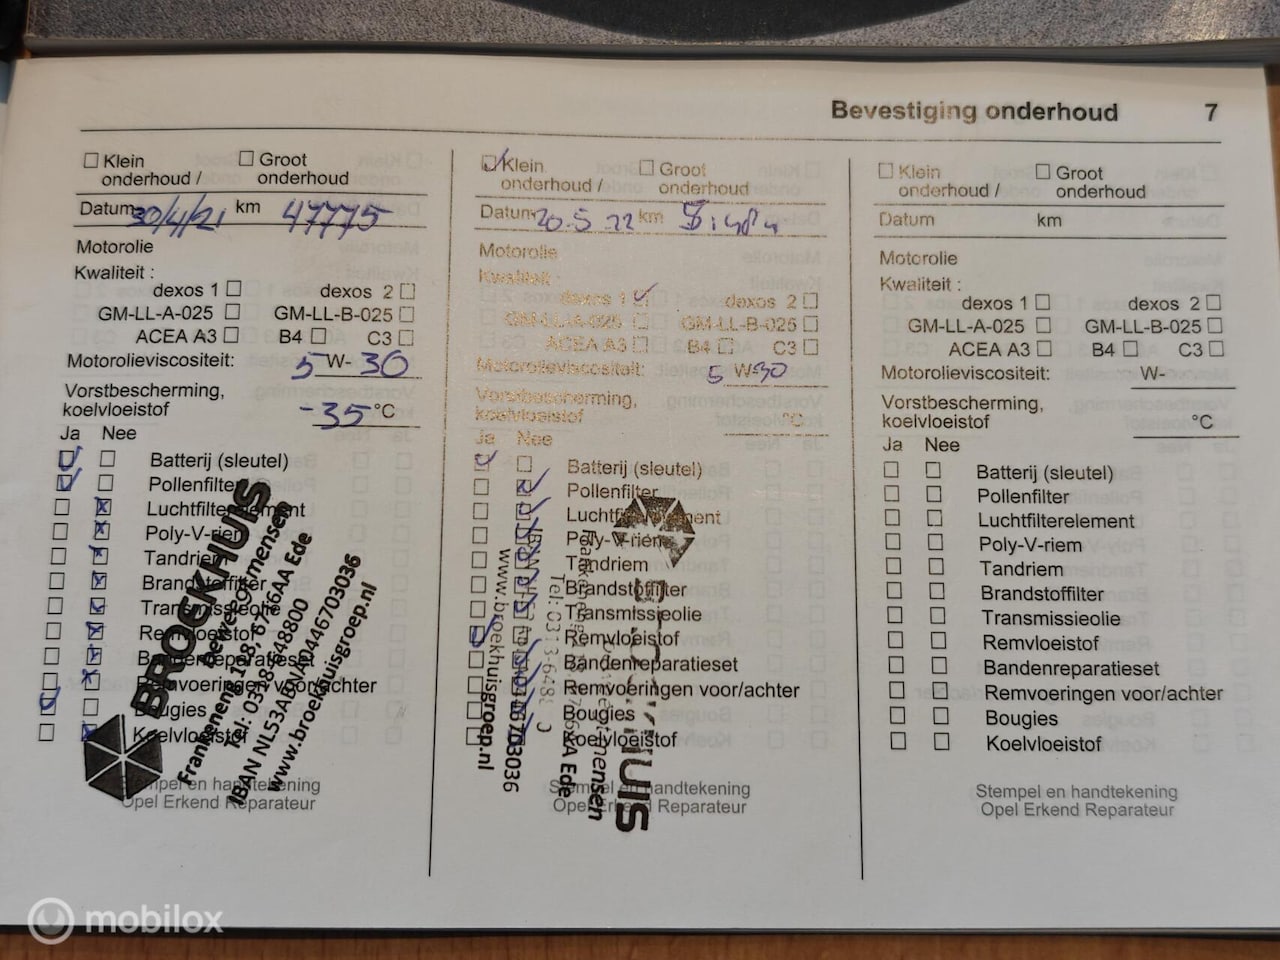 Bevestiging onderhoud 7
Klein onderhoud / Groot onderhoud
Datum 30/4/21 km 47775
Motorolie
Kwaliteit :
dexos 1 dexos 2
GM-LL-A-025 GM-LL-B-025
ACEA A3 B4 C3
Motorolieviscositeit: 5 W- 30
Vorstbescherming,
koelvloeistof -35 °C
Ja Nee
Batterij (sleutel)
Pollenfilter
Luchtfilterelement
Poly-V-riem
Tandriem
Brandstoffilter
Transmissieolie
Remvloeistof
Bandenreparatieset
Remvoeringen voor/achter
Bougies
Koelvloeistof
BROEKHUIS
Beweegt mensen
Tel: 0318-648800
www.broekhuisgroep.nl
Stempel en handtekening
Opel Erkend Reparateur
Klein onderhoud / Groot onderhoud
Datum 20.5.22 km
Motorolie
Kwaliteit :
dexos 1 dexos 2
GM-LL-A-025 GM-LL-B-025
ACEA A3 B4 C3
Motorolieviscositeit: 5 W-30
Vorstbescherming,
koelvloeistof °C
Ja Nee
Batterij (sleutel)
Pollenfilter
Luchtfilterelement
Poly-V-riem
Tandriem
Brandstoffilter
Transmissieolie
Remvloeistof
Bandenreparatieset
Remvoeringen voor/achter
Bougies
Koelvloeistof
www.broekhuisgroep.nl
Stempel en handtekening
Opel Erkend Reparateur
Klein onderhoud / Groot onderhoud
Datum km
Motorolie
Kwaliteit :
dexos 1 dexos 2
GM-LL-A-025 GM-LL-B-025
ACEA A3 B4 C3
Motorolieviscositeit: W-
Vorstbescherming,
koelvloeistof °C
Ja Nee
Batterij (sleutel)
Pollenfilter
Luchtfilterelement
Poly-V-riem
Tandriem
Brandstoffilter
Transmissieolie
Remvloeistof
Bandenreparatieset
Remvoeringen voor/achter
Bougies
Koelvloeistof
Stempel en handtekening
Opel Erkend Reparateur
mobilox